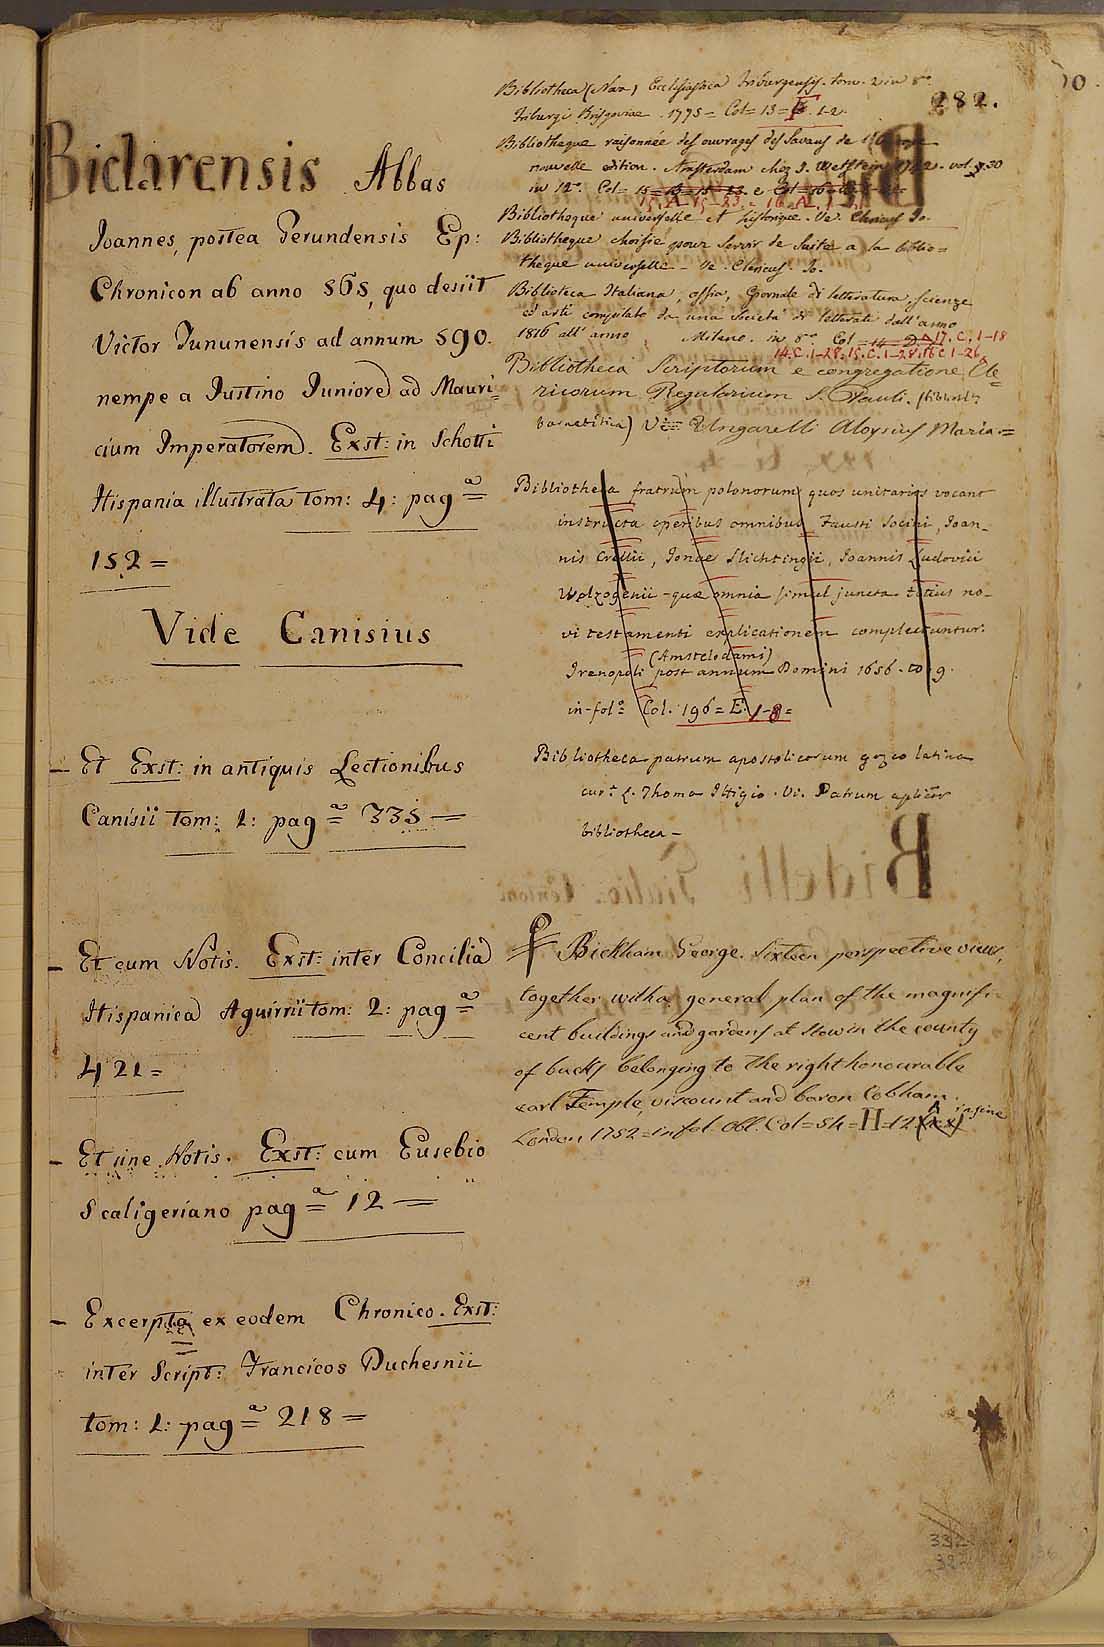 282.
Biclarensis Abbas
Joannes, postea Gerundensis Ep:
Chronicon ab anno 565, quo desiit
Victor Tununensis ad annum 590.
nempe a Justino Juniore ad Mauri=
cium Imperatorem. Exst: in Schotti
Hispania illustrata tom: 4: pag.ª =
152 =
Vide Canisius
– Et Exst: in antiquis Lectionibus
Canisii tom: 1: pagª = 335 —
– Et cum Notis. Exst: inter Concilia
Hispanica Aguirrii tom: 2: pagª =
421 =
– Et sine Notis. Exst: cum Eusebio
Scaligeriano pagª = 12 —
– Excerpta ex eodem Chronico. Exst:
inter Script: Francicos Duchesnii
tom: 1: pagª = 218 =
Bibliotheca (Nova) Ecclesiastica Friburgensis. tom. 2 in 8º
Friburgi Brisgoviae. 1775 = Col = 13 = F. 1-2.
Bibliotheque raisonnée des ouvrages des Savans de l'Europe
nouvelle edition. Amsterdam chez J. Wetstein
in 12º. Col =
Bibliotheque universelle et historique. Ve. Clericus Jo.
Bibliotheque choisie pour servir de suite a la biblio=
theque universelle – Ve. Clericus. Jo.
Biblioteca Italiana, ossia, Giornale di letteratura, scienze
ed arti compilato da una società di letterati dall'anno
1816 all'anno , Milano. in 8º Col = 17. C. 1-18
14. C. 1-28. 15. C. 1-28. 16 C 1-26
Bibliotheca Scriptorum e congregatione Cle=
ricorum Regularium S. Pauli.
Ungarelli Aloysius Maria =
Bibliotheca fratrum polonorum quos unitarios vocant
instructa operibus omnibus Fausti Socini, Joan-
nis Crellii, Jonae Slichtingii, Joannis Ludovici
Wolzogenii – quae omnia simul juncta totius no-
vi testamenti explicationem complectuntur.
(Amstelodami)
Irenopoli post annum Domini 1656. to. 9.
in-folº Col. 196 = E. 1-8 =
Bibliotheca patrum apostolicorum graeco latina
L. Thoma Ittigio. Vi. Patrum
bibliotheca –
Bickham George. Sixteen perspective views,
together with a general plan of the magnifi
cent buildings and gardens at Stow in the county
of bucks belonging to the right honourable
earl Temple, viscount and baron Cobham.
London 1752 = in fol. obl. Col = 54 = H = 12 A in fine
332